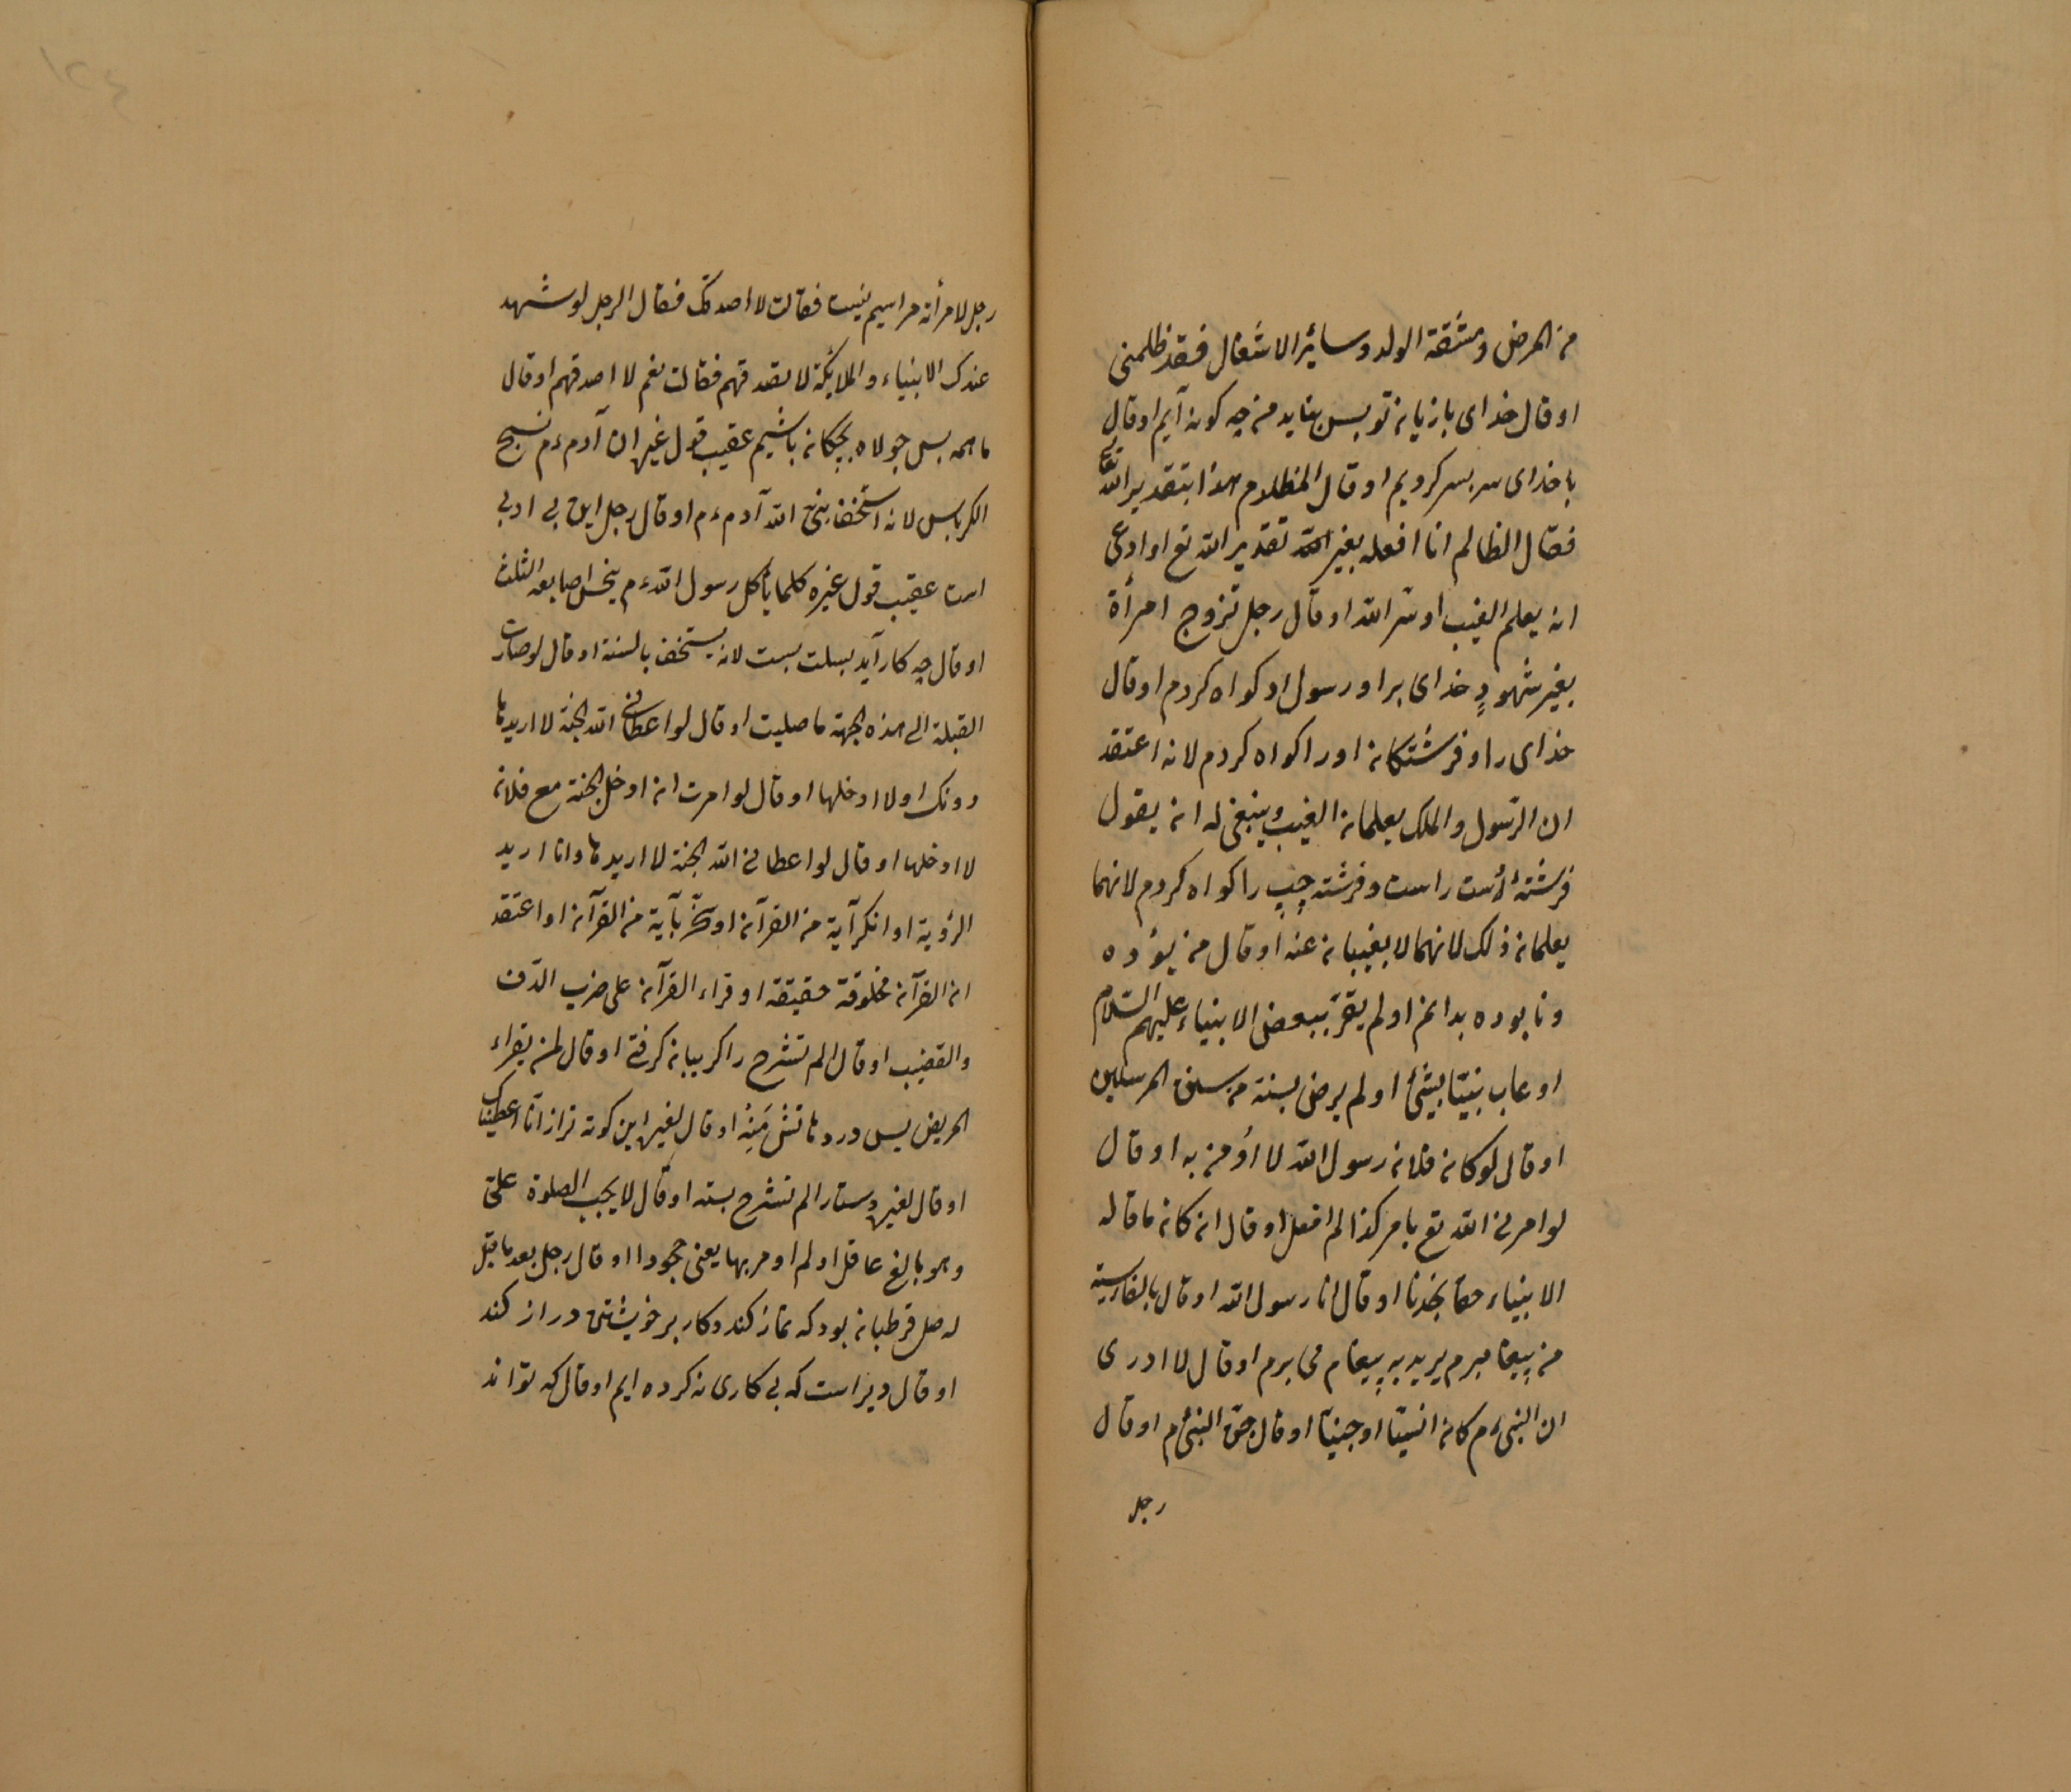 من المرض ومشقة الولد وسائر الاشغال فقد ظلمنى
او قال خداى با زبان تو بس نيايد من چه كونه آيم او قال
با خداى سر بسر كرديم او قال المظلوم هذا بتقدير الله تعالى
فقال الظالم انا افعله بغير تقدير الله تع او ادعى
انه يعلم الغيب او سر الله او قال رجل تزوج امرأة
بغير شهودٍ خداى برا و رسول او كواه كردم او قال
خداى را و فرشتكان او را كواه كردم لانه اعتقد
ان الرسول والملك يعلمان الغيب وينبغى له ان يقول
فرشتهٔ دست راست و فرشته چپ را كواه كردم لانهما
يعلمان ذلك لانهما لا يغيبان عنه او قال من بوده
ونا بوده بدانم او لم يقرّ ببعض الانبياء عليهم السّلام
او عاب نبيّا بشئ او لم يرض بسنة من سنن المرسلين
او قال لو كان فلان رسول الله لا اؤمن به او قال
لو امرنى الله تع بامر كذا لم افعل او قال ان كان ما قاله
الانبياء حقا نجونا او قال انا رسول الله او قال بالفارسية
من پيغامبرم يريد به پيغام مى برم او قال لا ادرى
ان النبىءم كان انسيّا او جنيّا او قال جنّ النبىءم او قال
رجل
رجل لامرأته مرا سيم نيست فقالت لا اصدقك فقال الرجل لو شهد
عندك الانبياء والملايكة لا تصدقهم فقالت نعم لا اصدقهم او قال
ما همه بس جولاه بچكان باشيم عقيب قول غيره ان آدمءم نسج
الكرباس لانه استخف بنبى الله آدمءم او قال رجل اين بى ادبى
است عقيب قول غيره كلما يأكل رسول اللهءم يلحس اصابعه الثلث
او قال چه كار آيد بسلت پست لانه يستخف بالسنة او قال لو صارت
القبلة الى هذه الجهة ما صليت او قال لو اعطانى الله الجنة لا اريدها
دونك او لا ادخلها او قال لو امرت ان ادخل الجنة مع فلان
لا ادخلها او قال لو اعطانى الله الجنة لا اريدها وانا اريد
الرؤية او انكر آية من القرآن او سخّر بآية من القرآن او اعتقد
ان القرآن مخلوقة حقيقة او قراء القرآن على ضرب الدّف
والقضيب او قال الم نشرح را كريبان كرفتى او قال لمن يقراء
المريض يس در دهانش مَنِهْ او قال لغيره اين كونه تر از انّا اعطيناك
او قال لغيره دستار الم نشرح بسته او قال لا يجب الصلوة علىّ
وهو بالغ عاقل او لم اومر بها يعنى جحودا او قال رجل بعد ما قيل
له صل قرطبان بود كه نماز كند وكار بر خويشتن دراز كند
او قال ديراست كه بى كارى نه كرده ايم او قال كه تواند